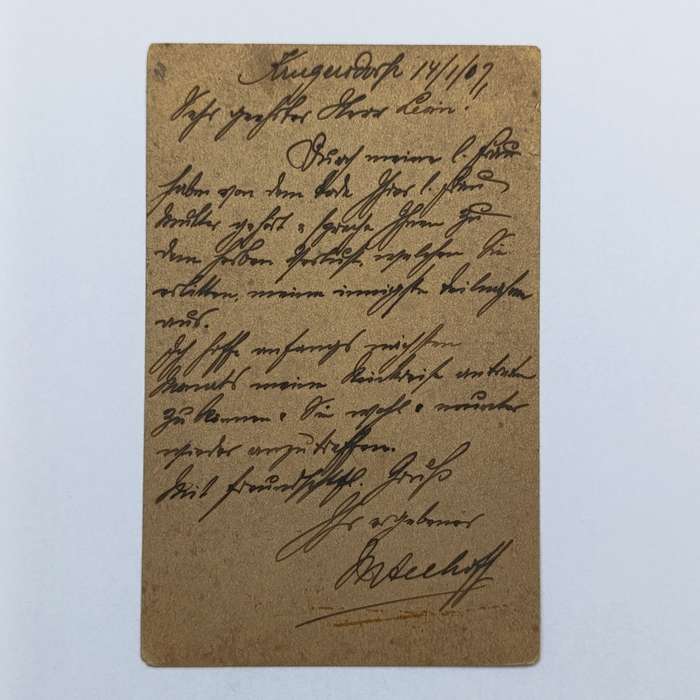 Krugersdorp 14/1/07,
Sehr geehrter Herr Levin.
Durch meine l. Frau
habe von dem Tode Ihrer l. Frau
Mutter gehört & spreche Ihnen zu
dem herben Verlust, welchen Sie
erlitten, meine innigste Teilnahme
aus.
Ich hoffe anfangs nächsten
Monats meine Rückreise antreten
zu können & Sie wohl & munter
wieder anzutreffen.
Mit freundschftl. Gruß
Ihr ergebener